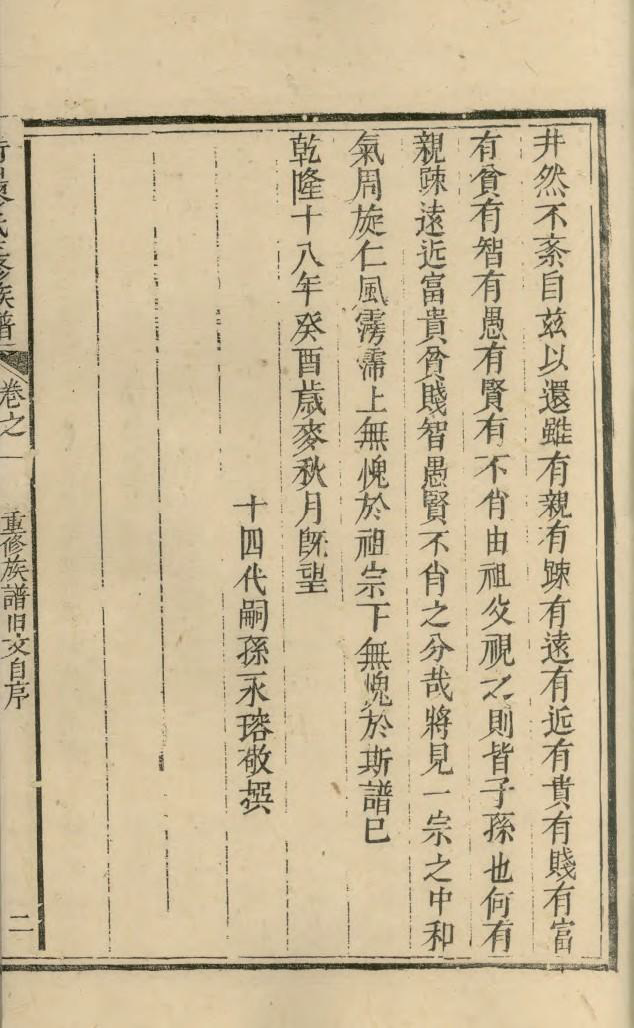 井然不紊自茲以還雖有親有踈有遠有近有貴有賤有富
有貧有智有愚有賢有不肖由祖父視之則皆子孫也何有
親踈遠近富貴貧賤智愚賢不肖之分哉將見一宗之中和
氣周旋仁風霶霈上無愧於祖宗下無愧於斯譜已
乾隆十八年癸酉歲麥秋月旣望
十四代嗣孫永瑢敬撰
氏五修族譜
卷之一
重修族譜旧文自序
二